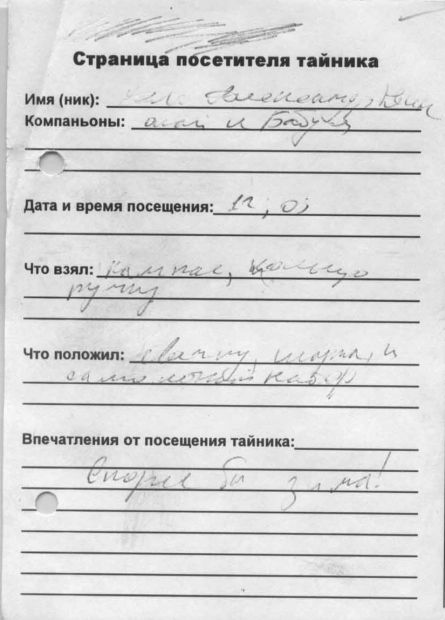 Страница посетителя тайника
Имя (ник): Александр, 
Компаньоны: и
Дата и время посещения:
Что взял: компас, кольцо
ручку
Что положил: свечку, и
самолетный набор
Впечатления от посещения тайника:
Скорее бы зима!